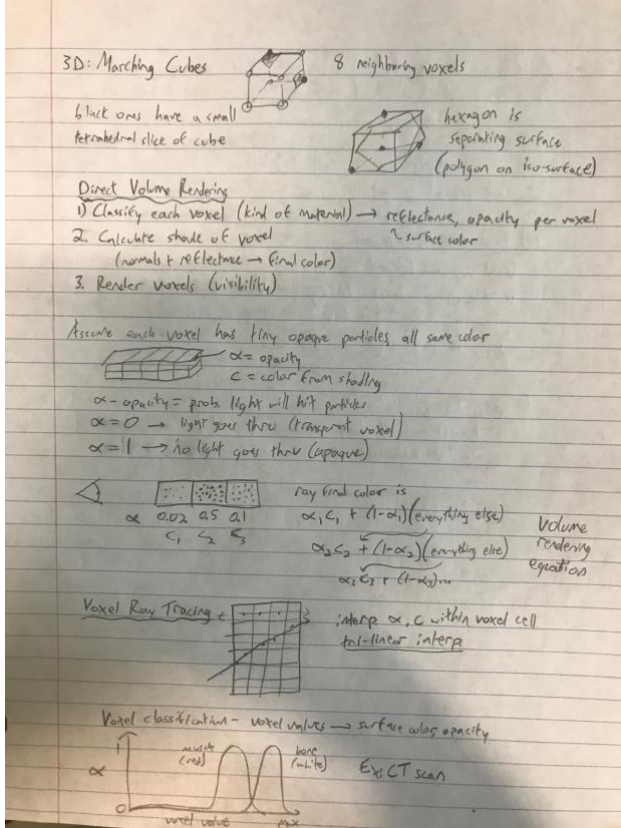 3D: Marching Cubes
8 neighboring voxels
black ones have a small
tetrahedral slice of cube
hexagon is
separating surface
(polygon on iso-surface)
Direct Volume Rendering
1) Classify each voxel (kind of material) → reflectance, opacity per voxel
surface color
2. Calculate shade of voxel
(normals + reflectance → final color)
3. Render voxels (visibility)
Assume each voxel has tiny opaque particles, all same color
α = opacity
C = color from shading
α - opacity = prob. light will hit particles
α = 0 → light goes thru (transparent voxel)
α = 1 → no light goes thru (opaque)
ray final color is
α 0.02 0.5 0.1
C₁ C₂ C₃
α₁C₁ + (1-α₁)(everything else)
α₂C₂ + (1-α₂)(everything else)
Volume
rendering
equation
Voxel Ray Tracing
interp α, C within voxel cell
tri-linear interp
Voxel classification - voxel values → surface color, opacity
1
muscle
(red)
bone
(white)
Ex: CT scan
α
0
voxel value
max